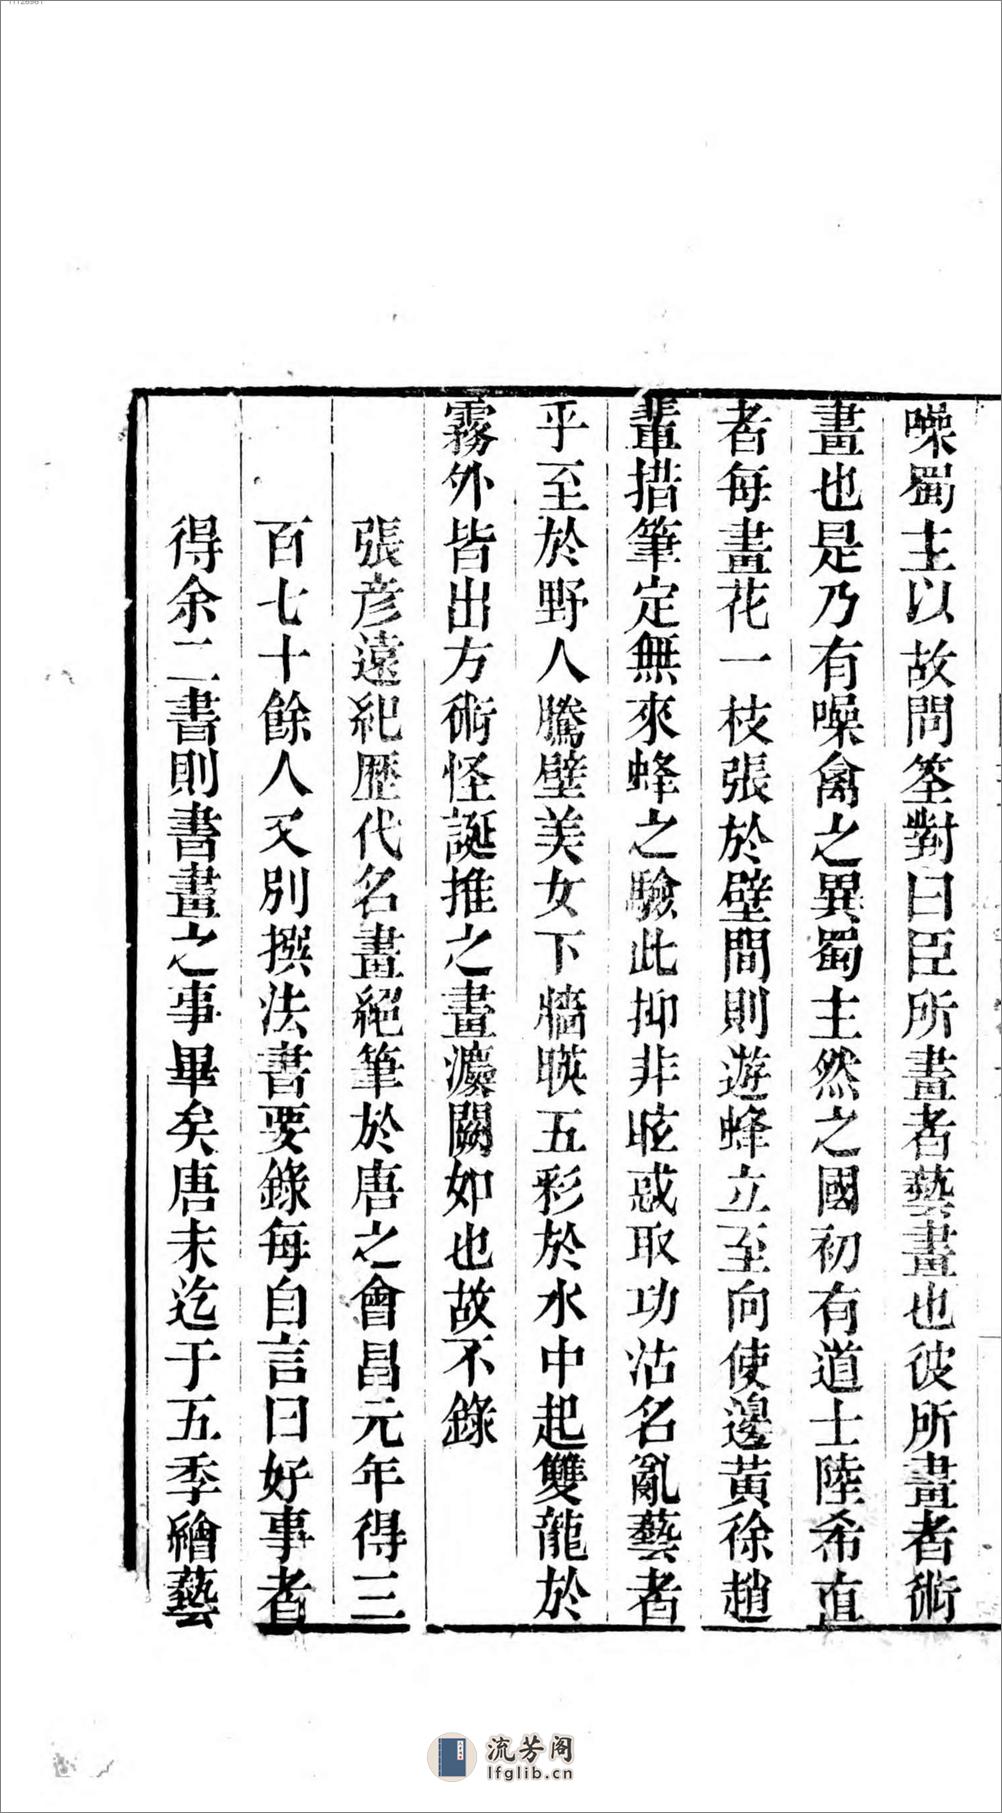 噪蜀主以故問筌對曰臣所畫者藝畫也彼所畫者術
畫也是乃有噪禽之異蜀主然之國初有道士陸希真
者每畫花一枝張於壁間則遊蜂立至向使邊黃徐趙
輩措筆定無來蜂之驗此抑非眩惑取功沽名亂藝者
乎至於野人騰壁美女下牆暎五彩於水中起雙龍於
霧外皆出方術怪誕推之畫灋闕如也故不錄
張彥遠紀歷代名畫絕筆於唐之會昌元年得三
百七十餘人又別撰法書要錄每自言曰好事者
得余二書則書畫之事畢矣唐末迄于五季繪藝
流芳阁
lfglib.cn